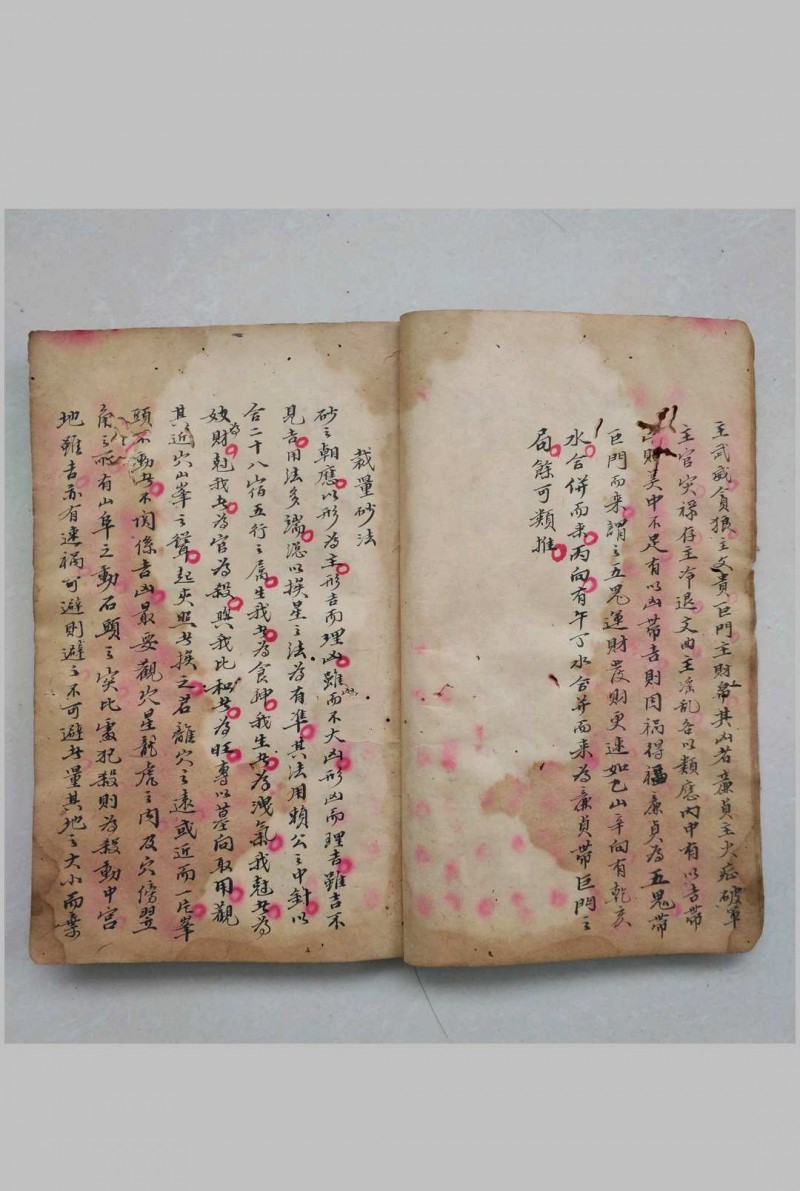 主武威貪狼主文貴巨門主財帛其凶者廉貞主火症破軍
主官灾祿存主冷退文曲主滛乱各以類應內中有以吉帶
凶則美中不足有以凶帶吉則因禍得福廉貞為五鬼帶
巨門而来謂之五鬼運財發財更速如巳山辛向有乾亥
水合併而来丙向有午丁水合并而来為廉貞帶巨門之
局餘可類推
裁量砂法
砂之朝應以形為主形吉而理凶雖而不大凶形凶而理吉雖吉不
見吉用法多端總以撥星之法為有準其法用賴公之中針以
合二十八宿五行之属生我者為食神我生者為洩氣我尅者為
奴財尅我者為官為殺與我比和者為旺專以墓向取用觀
其近穴山峯之聳起夾照者撥之若離穴之遠或近而一片峯
頭不動者不関係吉凶最要觀穴星龍虎之内及穴傍翌
角之所有山阜之動石頭之突比處犯殺則為殺動中宮
地雖吉亦有速禍可避則避之不可避者量其地之大小而棄